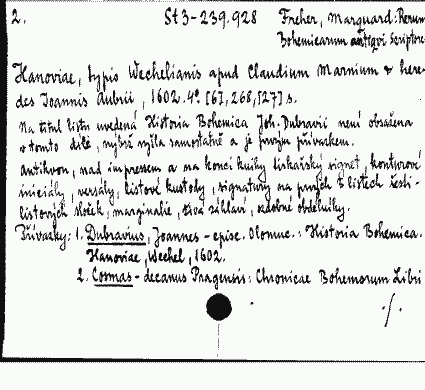 2. St 3-239.928 Freher, Marquard: Rerum
Bohemicarum antiqvi scriptore
Hanoviae, typis Wechelianis apud Claudium Marnium & here-
des Joannis Aubrii, 1602. 4° [6], 268, [27] s.
Na titul. listu uvedená Historia Bohemica Joh. Dubravii není obsažena
v tomto díle, nýbrž vyšla samostatně a je prvým přívazkem.
Antikvou, nad impressem a na konci knihy tiskařský signet, konturové
iniciály, versály, listové kustody, signatury na prvých listech šesti-
listových složek, marginalie, živá záhlaví, ozdobné obdélníky.
Přívazky: 1. Dubravius, Joannes - episc. Olomuc.: Historia Bohemica.
Hanoviae, Wechel, 1602.
2. Cosmas - decanus Pragensis: Chronicae Bohemorum Libri
./.